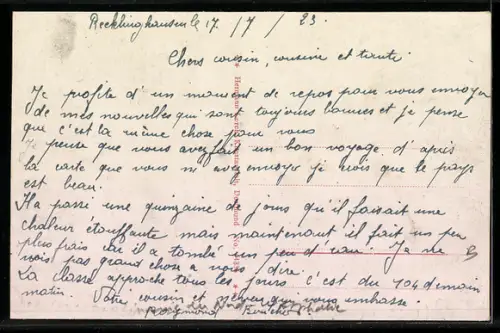 Recklinghausen le 17 / 7 / 23.
Chers cousin, cousine et tante
Je profite d'un moment de repos pour vous envoyer
de mes nouvelles qui sont toujours bonnes et je pense
que c'est la même chose pour vous
Je pense que vous avez fait un bon voyage. d'après
la carte que vous m'avez envoyer je vois que le pays
est beau.
Il a passé une quinzaine de jours qu'il faisait une
chaleur étouffante mais maintenant il fait un peu
plus frais car il a tombé un peu d'eau. Je ne
vois pas grand chose a vous dire.
La classe approche tous les jours c'est du 104 demain
matin. Votre cousin et neveu qui vous embrasse.